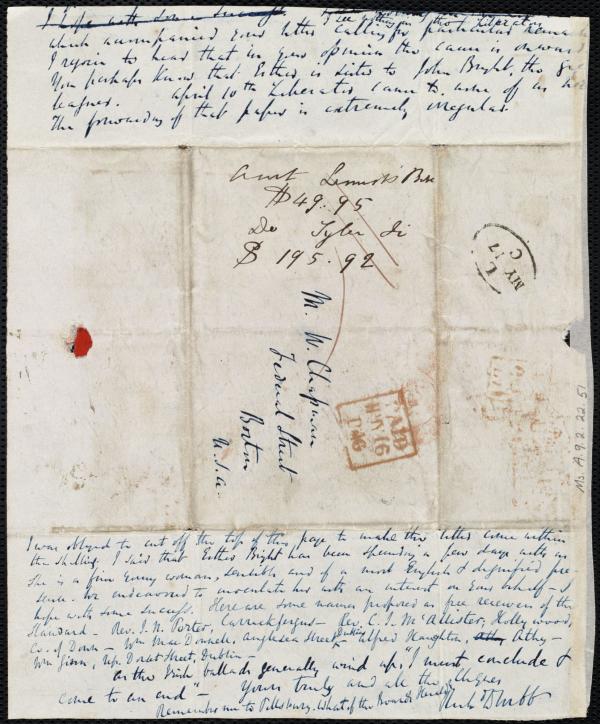 I hope with some success
which accompanied your letter calling for particular remark
I rejoice to hear that in your opinion the cause is onward
You perhaps know that Esther is sister to John Bright, the great
leaguer. April 10th Liberator came to none of us here
The forwarding of that paper is extremely irregular.
Amt Bill
$49.95
Do Tyler
$195.92
M. W. Chapman
Federal Street
Boston
U.S.a.
L
MY 17
C
PAID
MY 16
1846
Ms. A.9.2.22.51
I was obliged to cut off the top of this page to make this letter come within
the shilling. I said that Esther Bright has been spending a few days with us
She is a fine young woman, sensible and of a most English & dignified pre-
sence. We endeavored to inoculate her with an interest on your behalf - I
hope with some success. Here are some names proposed as free receivers of the
Standard - Rev. J. N. Porter, Carrickfergus - Rev. C. J. McAlester, Hollywood,
Co. of Down - Wm MacDonnell, Anglesea Street Dublin - Alfred Haughton, Athy -
Wm Upr. Dorset Street, Dublin -
As the Irish ballads generally wind up, "I must conclude &
come to an end" - Yours truly and all the
Remember me to Pillsbury. What of the Boards Herald
Rich D Webb